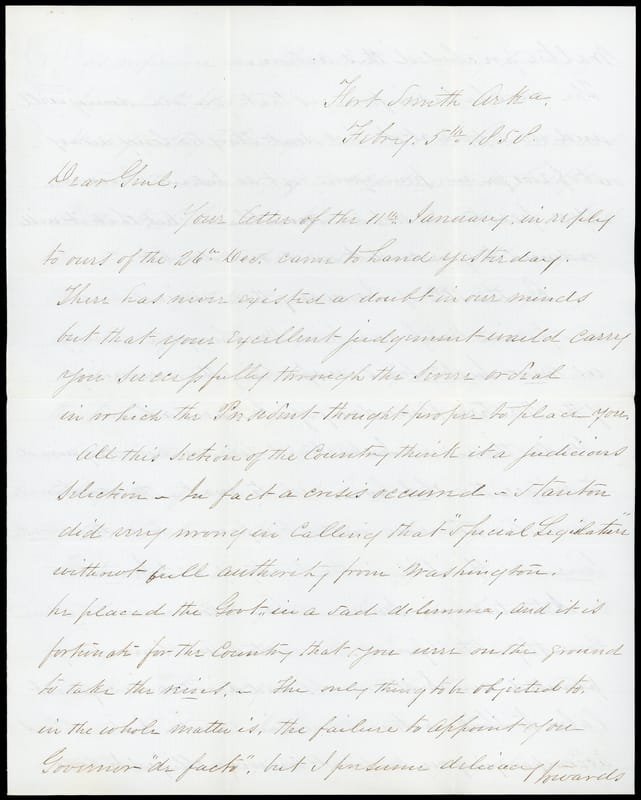 Fort Smith Arka.
Febry. 5th 1858.
Dear Genl.
Your letter of the 11th January, in reply
to ours of the 26th Dec. came to hand yesterday.
There has never existed a doubt in our minds
but that your excellent judgement would carry
you successfully through the severe ordeal
in which the President thought proper to place you.
All this section of the Country think it a judicious
selection - In fact a crisis occurred - Stanton
did very wrong in calling that "Special Legislature"
without full authority from Washington.
he placed the Govt. in a sad dilemma, and it is
fortunate for the Country that you were on the ground
to take the reins. - The only thing to be objected to.
in the whole matter is, the failure to appoint you
Governor "de facto". but I presume delicacy towards